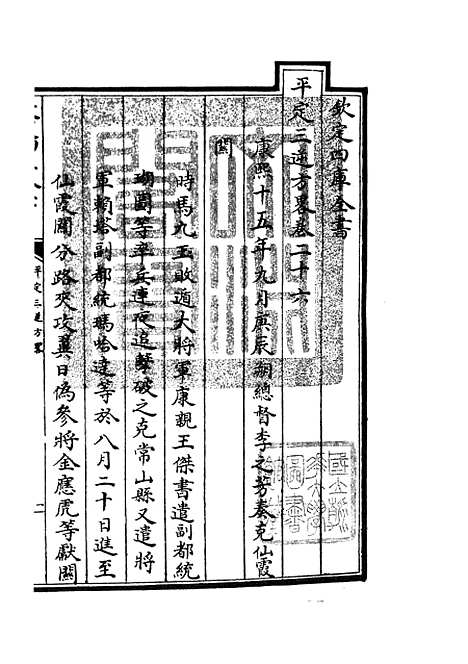 欽定四庫全書
平定三逆方畧卷二十六
康熙十五年九月庚辰朔總督李之芳奏克仙霞
關
時馬九玉敗遁大將軍康親王傑書遣副都統
瑚圖等率兵連夜追擊破之克常山縣又遣將
軍賴塔副都統瑪哈達等於八月二十日進至
仙霞關分路夾攻異日偽參將金應虎等獻關
平定三逆方畧